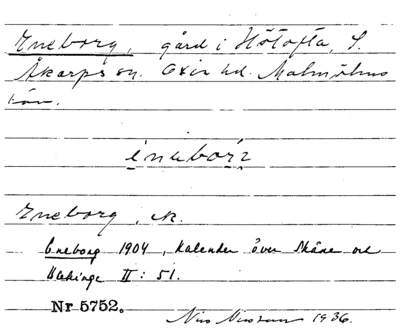 Eneborg, gård i Hötofta, S.
Åkarps sn. Oxie hd. Malmöhus
län.
inaborʒ
Eneborg, ek.
Eneborg 1904, Kalender över Skåne och
Blekinge II: 51.
Nr 5752.
Nils Nilsson 1936.